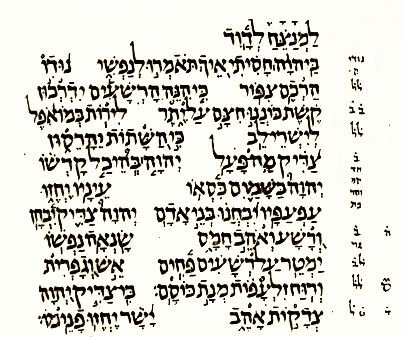 לַמְנַצֵּ֗חַ לְדָ֫וִ֥ד
בַּיהוָ֨ה ׀ חָסִ֗יתִי אֵ֭יךְ תֹּאמְר֣וּ לְנַפְשִׁ֑י נ֝֗וּדוּ
הַרְכֶ֥ם צִפּֽוֹר כִּ֤י הִנֵּ֪ה הָרְשָׁעִ֡ים יִדְרְכ֬וּן
קֶ֗שֶׁת כּוֹנְנ֣וּ חִצָּ֣ם עַל יֶ֑תֶר לִיר֥וֹת בְּמוֹ אֹ֝֗פֶל
לְיִשְׁרֵי לֵֽב כִּ֣י הַ֭שָּׁתוֹת יֵהָרֵס֑וּן
צַ֝דִּ֗יק מַה פָּעָֽל יְהוָ֤ה ׀ בְּֽהֵ֘יכַ֤ל קָדְשׁ֗וֹ
יְהוָה֮ בַּשָּׁמַ֪יִם כִּ֫סְא֥וֹ עֵינָ֥יו יֶחֱז֑וּ
עַפְעַפָּ֥יו יִ֝בְחֲנ֗וּ בְּנֵ֣י אָדָֽם יְהוָה֮ צַדִּ֪יק יִ֫בְחָ֥ן
וְ֭רָשָׁע וְאֹהֵ֣ב חָמָ֑ס שָֽׂנְאָ֥ה נַפְשֽׁוֹ
יַמְטֵ֥ר עַל רְשָׁעִ֗ים פַּ֫חִ֥ים אֵ֣שׁ וְ֭גָפְרִית
וְר֥וּחַ זִלְעָפ֗וֹת מְנָ֣ת כּוֹסָֽם כִּֽי צַדִּ֣יק יְ֭הוָה
צְדָק֣וֹת אָהֵ֑ב יָ֝שָׁ֗ר יֶחֱז֥וּ פָנֵֽימוֹ׃